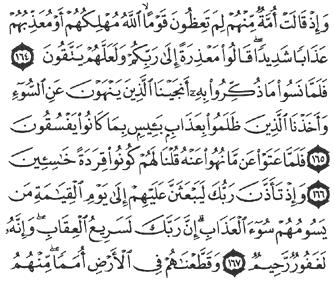 وَإِذْ قَالَتْ أُمَّةٌ مِّنْهُمْ لِمَ تَعِظُونَ قَوْمًا ۙ اللَّهُ مُهْلِكُهُمْ أَوْ مُعَذِّبُهُمْ
عَذَابًا شَدِيدًا ۖ قَالُوا مَعْذِرَةً إِلَىٰ رَبِّكُمْ وَلَعَلَّهُمْ يَتَّقُونَ ١٦٤
فَلَمَّا نَسُوا مَا ذُكِّرُوا بِهِ أَنجَيْنَا الَّذِينَ يَنْهَوْنَ عَنِ السُّوءِ
وَأَخَذْنَا الَّذِينَ ظَلَمُوا بِعَذَابٍ بَئِيسٍ بِمَا كَانُوا يَفْسُقُونَ
١٦٥ فَلَمَّا عَتَوْا عَن مَّا نُهُوا عَنْهُ قُلْنَا لَهُمْ كُونُوا قِرَدَةً خَاسِئِينَ
١٦٦ وَإِذْ تَأَذَّنَ رَبُّكَ لَيَبْعَثَنَّ عَلَيْهِمْ إِلَىٰ يَوْمِ الْقِيَامَةِ مَن
يَسُومُهُمْ سُوءَ الْعَذَابِ ۗ إِنَّ رَبَّكَ لَسَرِيعُ الْعِقَابِ ۖ وَإِنَّهُ
لَغَفُورٌ رَّحِيمٌ ١٦٧ وَقَطَّعْنَاهُمْ فِي الْأَرْضِ أُمَمًا ۖ مِّنْهُمُ